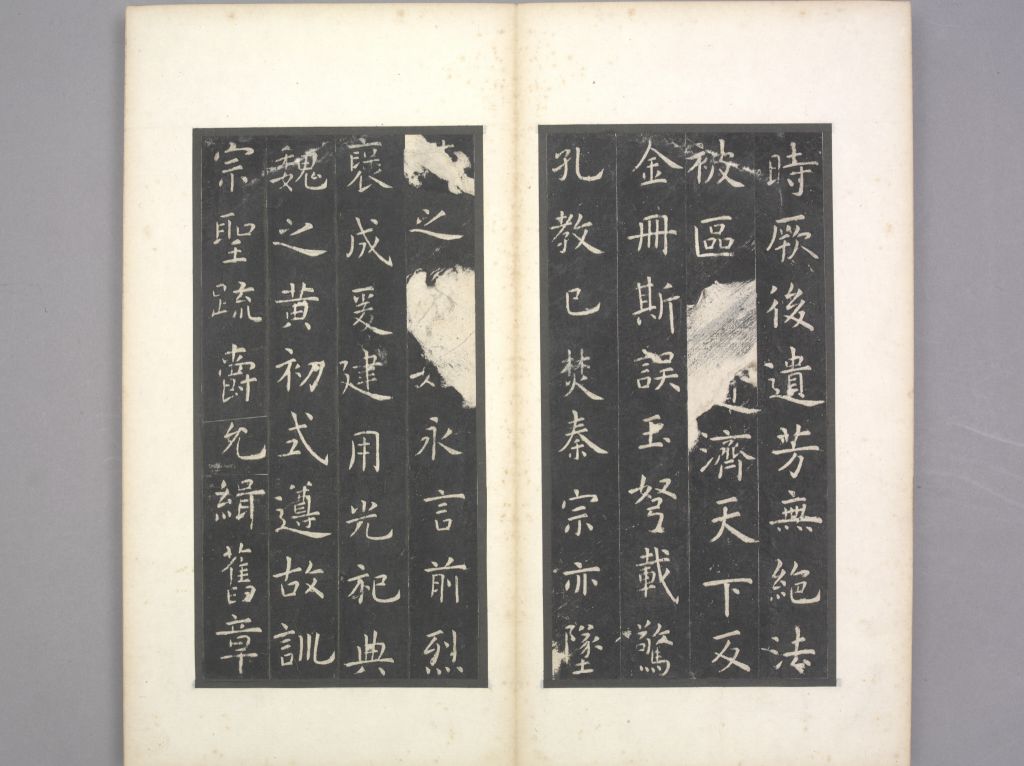 時厥後遺芳無絕法
被區近濟天下反
金冊斯誤玉弩載驚
孔教已焚秦宗亦墜
之永言前烈
褒成爰建用光祀典
魏之黃初式遵故訓
宗聖疏爵允緝舊章